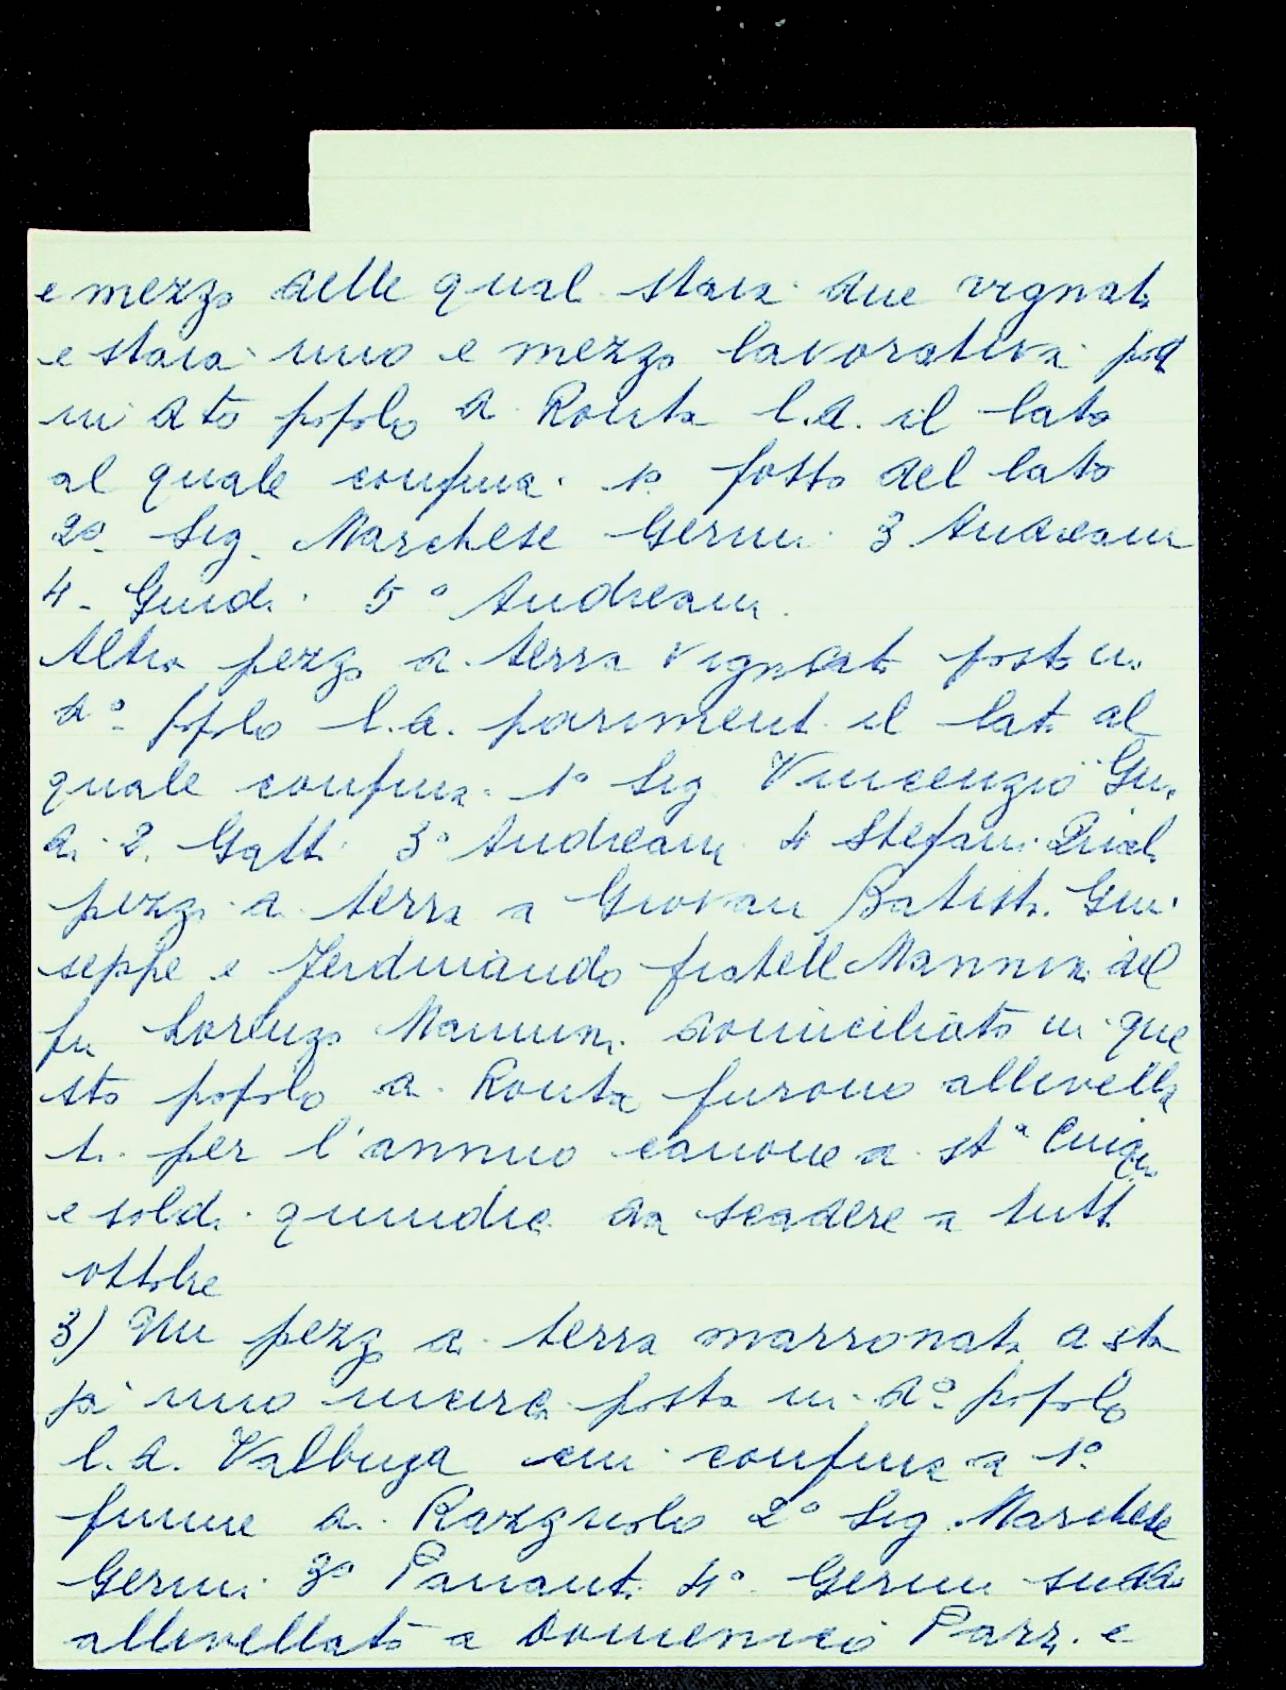 e mezzo delle quali staia due vignate
e staia uno e mezzo lavorativa pos
in dto popolo di Ronta l.d. il lato
al quale confina 1º fosso del lato
2º Sig. Marchese Gerini 3 Andreani
4. Guidi 5º Andreani.
Altro pezzo di terra vignato posto in
dº popolo l.d. pariment. il lato al
quale confina 1º Sig Vincenzio Gui
di 2. Gatti 3º Andreani 4 Stefani Quali
pezzi di terra a Giovan Batista Giu
seppe e Ferdinando fratelli Mannini del
fu Lorenzo Mannini domiciliato in que
sto popolo di Ronta furono allivella
ti per l'annuo canone di st.a Cinque
e soldi quindici da scadere a tutto
ottobre
3) Un pezzo di terra marronata di sta
ja uno incirca posta in dº popolo
l.d. Valbuga cui confina a 1º
fiume di Razzuolo 2º Sig Marchese
Gerini 3º Pananti 4º Gerini sudd.
allivellato a Domenico Parr. e